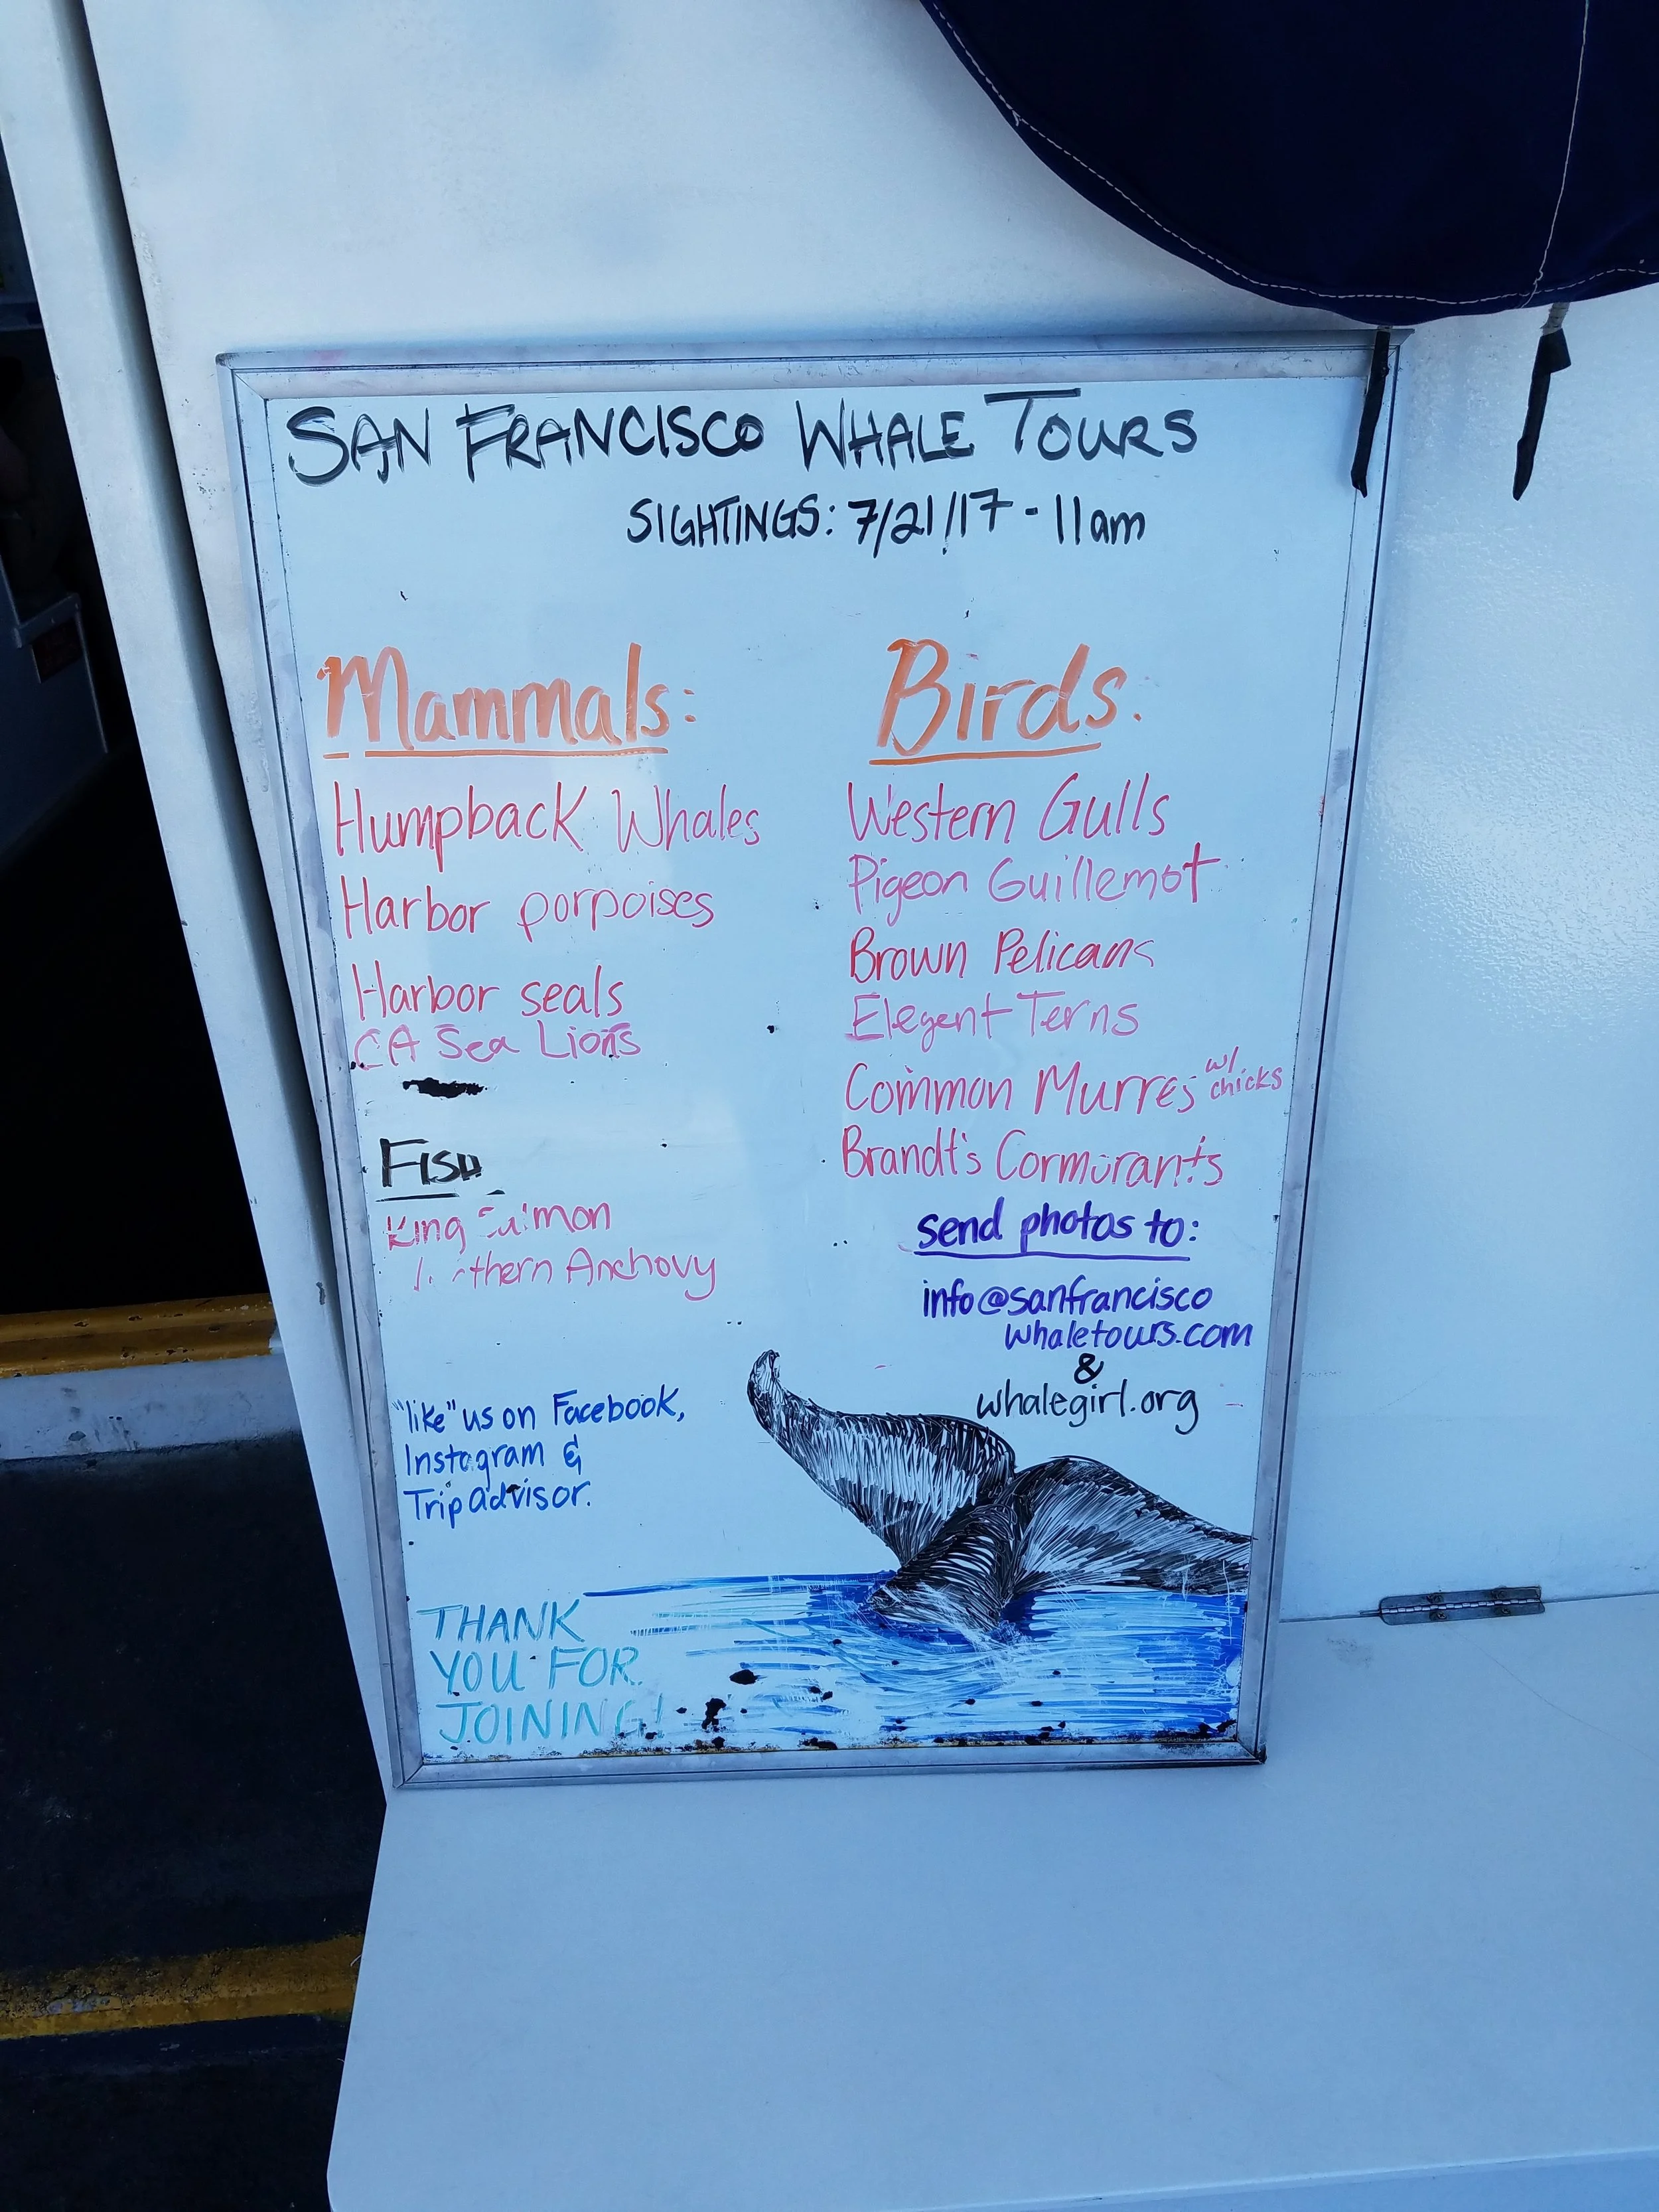 SAN FRANCISCO WHALE TOURS
SIGHTINGS: 7/21/17 - 11am
Mammals:
Humpback Whales
Harbor porpoises
Harbor seals
CA Sea Lions
Fish
King Salmon
Northern Anchovy
Birds:
Western Gulls
Pigeon Guillemot
Brown Pelicans
Elegent Terns
Common Murres w/ chicks
Brandt's Cormorants
send photos to:
info@sanfrancisco
whaletours.com
&
whalegirl.org
"like" us on Facebook,
Instagram &
Tripadvisor.
THANK
YOU FOR
JOINING!